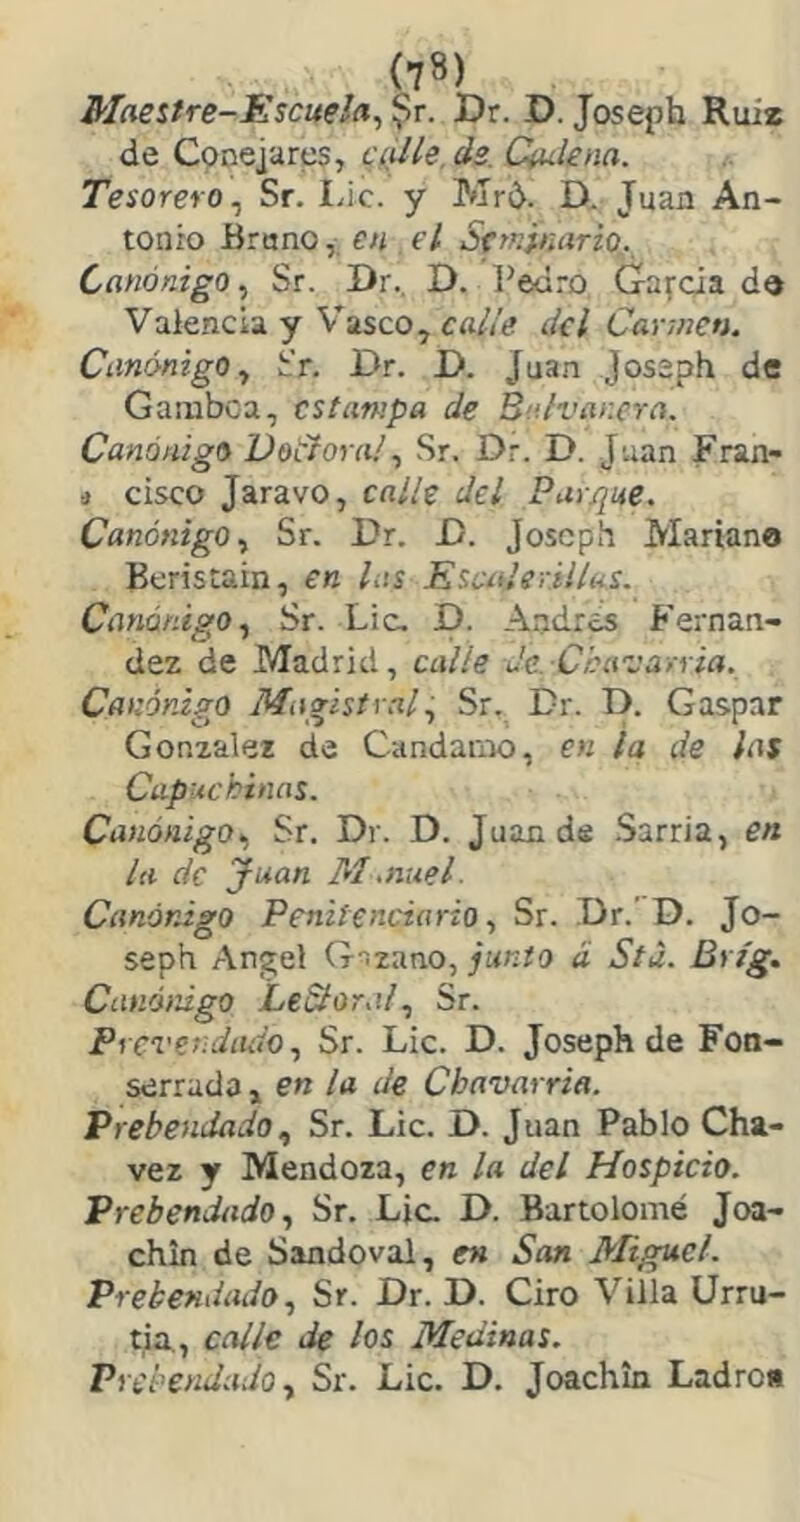 (78)
Maestre-Escuela, Sr. Dr. D. Joseph Ruiz
de Conejares, calle de Cadena.
Tesorero, Sr. Lic. y Mrô. D. Juan An-
tonio Bruno, en el Seminario.
Canónigo, Sr. Dr. D. Pedro Garcia de
Valencia y Vasco, calle del Carmen.
Canónigo, Sr. Dr. D. Juan Joseph de
Gamboa, estampa de Balvanera.
Canónigo Doctoral, Sr. Dr. D. Juan Fran-
cisco Jaravo, calle del Parque.
Canónigo, Sr. Dr. D. Joseph Mariano
Beristain, en las Escalerillas.
Canónigo, Sr. Lic. D. Andrés Fernan-
dez de Madrid, calle de Chavarria.
Canónigo Magistral, Sr. Dr. D. Gaspar
Gonzalez de Candamo, en la de las
Capuchinas.
Canónigo, Sr. Dr. D. Juan de Sarria, en
la de Juan Manuel.
Canónigo Penitenciario, Sr. Dr. D. Jo-
seph Angel Gazano, junto á Stâ. Bríg.
Canónigo Lectoral, Sr.
Prevendado, Sr. Lic. D. Joseph de Fon-
serrada, en la de Chavarria.
Prebendado, Sr. Lic. D. Juan Pablo Cha-
vez y Mendoza, en la del Hospicio.
Prebendado, Sr. Lic. D. Bartolomé Joa-
chîn de Sandoval, en San Miguel.
Prebendado, Sr. Dr. D. Ciro Villa Urru-
tia, calle de los Medinas.
Prebendado, Sr. Lic. D. Joachîn Ladron